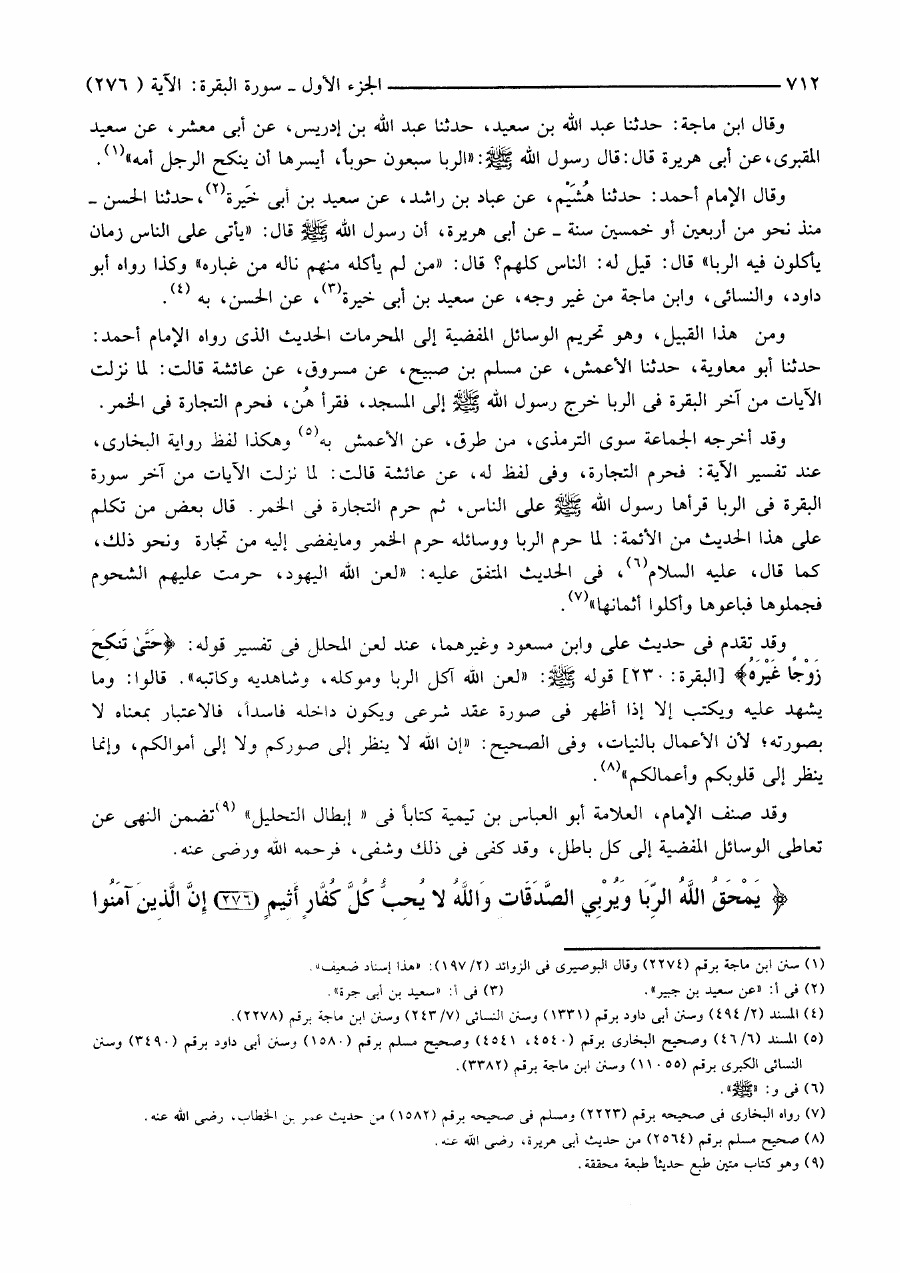 ٧١٢ ــــــــــــــــــــــــــــــ الجزء الأول ـ سورة البقرة: الآية ( ٢٧٦)
وقال ابن ماجة: حدثنا عبد الله بن سعيد، حدثنا عبد الله بن إدريس، عن أبى معشر، عن سعيد
المقبرى،عن أبى هريرة قال:قال رسول الله ﷺ:«الربا سبعون حوباً، أيسرها أن ينكح الرجل أمه»(١).
وقال الإمام أحمد: حدثنا هُشَيْم، عن عباد بن راشد، عن سعيد بن أبى خَيرة(٢)،حدثنا الحسن ـ
منذ نحو من أربعين أو خمسين سنة ـ عن أبى هريرة، أن رسول الله ﷺ قال: «يأتى على الناس زمان
يأكلون فيه الربا» قال: قيل له: الناس كلهم؟ قال: «من لم يأكله منهم ناله من غباره» وكذا رواه أبو
داود، والنسائى، وابن ماجة من غير وجه، عن سعيد بن أبى خيرة(٣)، عن الحسن، به (٤).
ومن هذا القبيل، وهو تحريم الوسائل المفضية إلى المحرمات الحديث الذى رواه الإمام أحمد:
حدثنا أبو معاوية، حدثنا الأعمش، عن مسلم بن صبيح، عن مسروق، عن عائشة قالت: لما نزلت
الآيات من آخر البقرة فى الربا خرج رسول الله ﷺ إلى المسجد، فقرأ هُن، فحرم التجارة فى الخمر.
وقد أخرجه الجماعة سوى الترمذى، من طرق، عن الأعمش به(٥) وهكذا لفظ رواية البخارى،
عند تفسير الآية: فحرم التجارة، وفى لفظ له، عن عائشة قالت: لما نزلت الآيات من آخر سورة
البقرة فى الربا قرأها رسول الله ﷺ على الناس، ثم حرم التجارة فى الخمر. قال بعض من تكلم
على هذا الحديث من الأئمة: لما حرم الربا ووسائله حرم الخمر ومايفضى إليه من تجارة ونحو ذلك،
كما قال، عليه السلام(٦)، فى الحديث المتفق عليه: «لعن الله اليهود، حرمت عليهم الشحوم
فجملوها فباعوها وأكلوا أثمانها»(٧).
وقد تقدم فى حديث على وابن مسعود وغيرهما، عند لعن المحلل فى تفسير قوله: ﴿حَتَّىٰ تَنكِحَ
زَوْجًا غَيْرَهُ﴾ [البقرة: ٢٣٠] قوله ﷺ: «لعن الله آكل الربا وموكله، وشاهديه وكاتبه». قالوا: وما
يشهد عليه ويكتب إلا إذا أظهر فى صورة عقد شرعى ويكون داخله فاسداً، فالاعتبار بمعناه لا
بصورته؛ لأن الأعمال بالنيات، وفى الصحيح: «إن الله لا ينظر إلى صوركم ولا إلى أموالكم، وإنما
ينظر إلى قلوبكم وأعمالكم»(٨).
وقد صنف الإمام، العلامة أبو العباس بن تيمية كتاباً فى « إبطال التحليل» (٩)تضمن النهى عن
تعاطى الوسائل المفضية إلى كل باطل، وقد كفى فى ذلك وشفى، فرحمه الله ورضى عنه.
﴿ يَمْحَقُ اللَّهُ الرِّبَا وَيُرْبِي الصَّدَقَاتِ وَاللَّهُ لا يُحِبُّ كُلَّ كَفَّارٍ أَثِيمٍ (٢٧٦) إِنَّ الَّذِينَ آمَنُوا
(١) سنن ابن ماجة برقم (٢٢٧٤) وقال البوصيرى فى الزوائد (٢/ ١٩٧): «هذا إسناد ضعيف».
(٢) فى أ: «عن سعيد بن جبير». (٣) فى أ: «سعيد بن أبى جرة».
(٤) المسند (٢/ ٤٩٤) وسنن أبى داود برقم (١٣٣١) وسنن النسائى (٧/ ٢٤٣) وسنن ابن ماجة برقم (٢٢٧٨).
(٥) المسند (٦/ ٤٦) وصحيح البخارى برقم (٤٥٤٠، ٤٥٤١) وصحيح مسلم برقم (١٥٨٠) وسنن أبى داود برقم (٣٤٩٠) وسنن
النسائى الكبرى برقم (١١٠٥٥) وسنن ابن ماجة برقم (٣٣٨٢).
(٦) فى و: «ﷺ».
(٧) رواه البخارى فى صحيحه برقم (٢٢٢٣) ومسلم فى صحيحه برقم (١٥٨٢) من حديث عمر بن الخطاب، رضى الله عنه.
(٨) صحيح مسلم برقم (٢٥٦٤) من حديث أبى هريرة، رضى الله عنه.
(٩) وهو كتاب متين طبع حديثاً طبعة محققة.